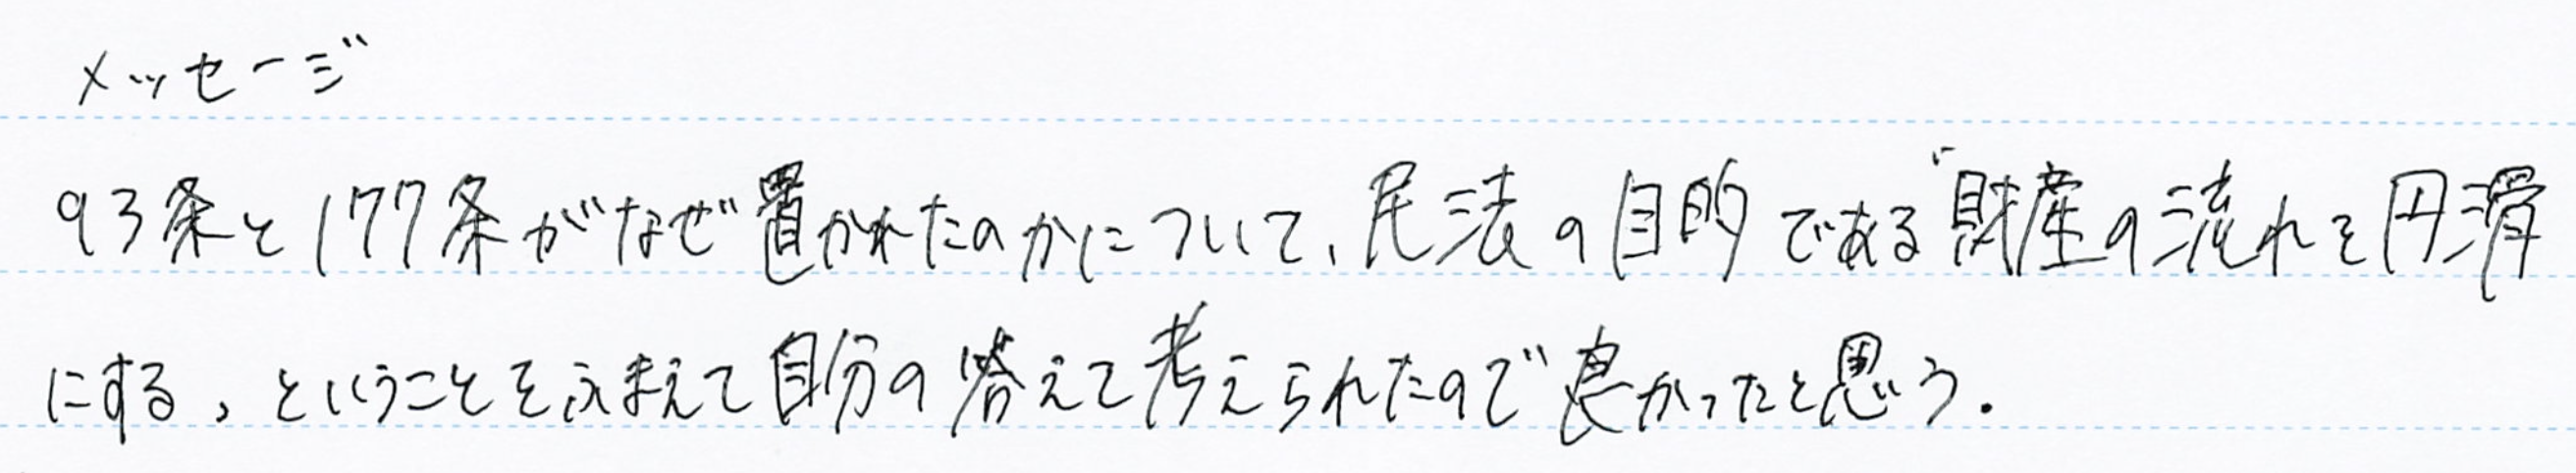 メッセージ
93条と177条がなぜ置かれたのかについて、民法の目的である"財産の流れを円滑
にする,ということをふまえて自分の答えて考えられたので良かったと思う.